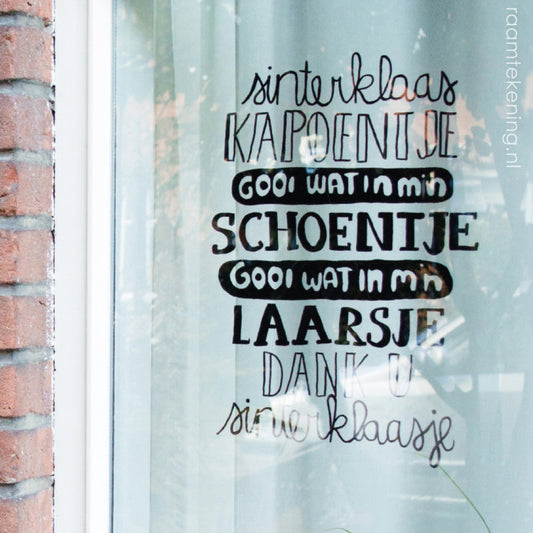 sinterklaas
KAPOENTJE
GOOI WAT in m'n
SCHOENTJE
GOOI WAT in m'n
LAARSJE
DANK U
sinterklaasje
raamtekening.nl